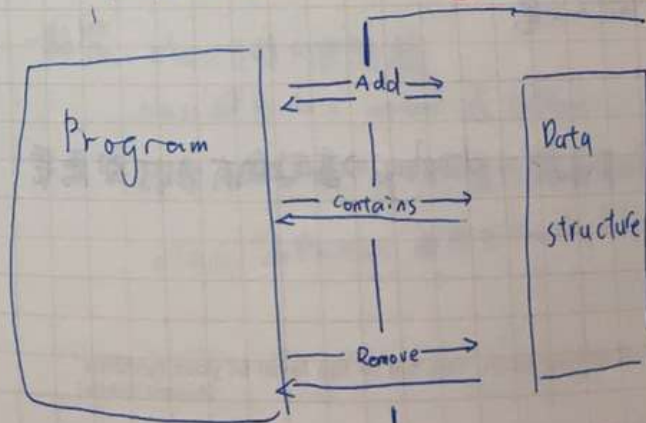 Program
Add
Contains
Remove
Data
structure